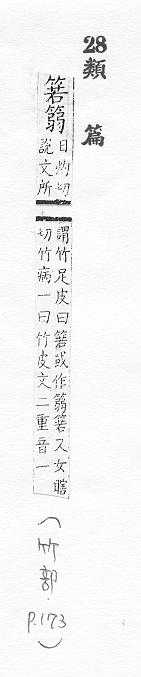 28 類篇
箬篛
日灼切
說文所
謂竹足皮曰箬或作篛箬又女瞎
切竹病一曰竹皮文二重音一
(竹部. P.173)